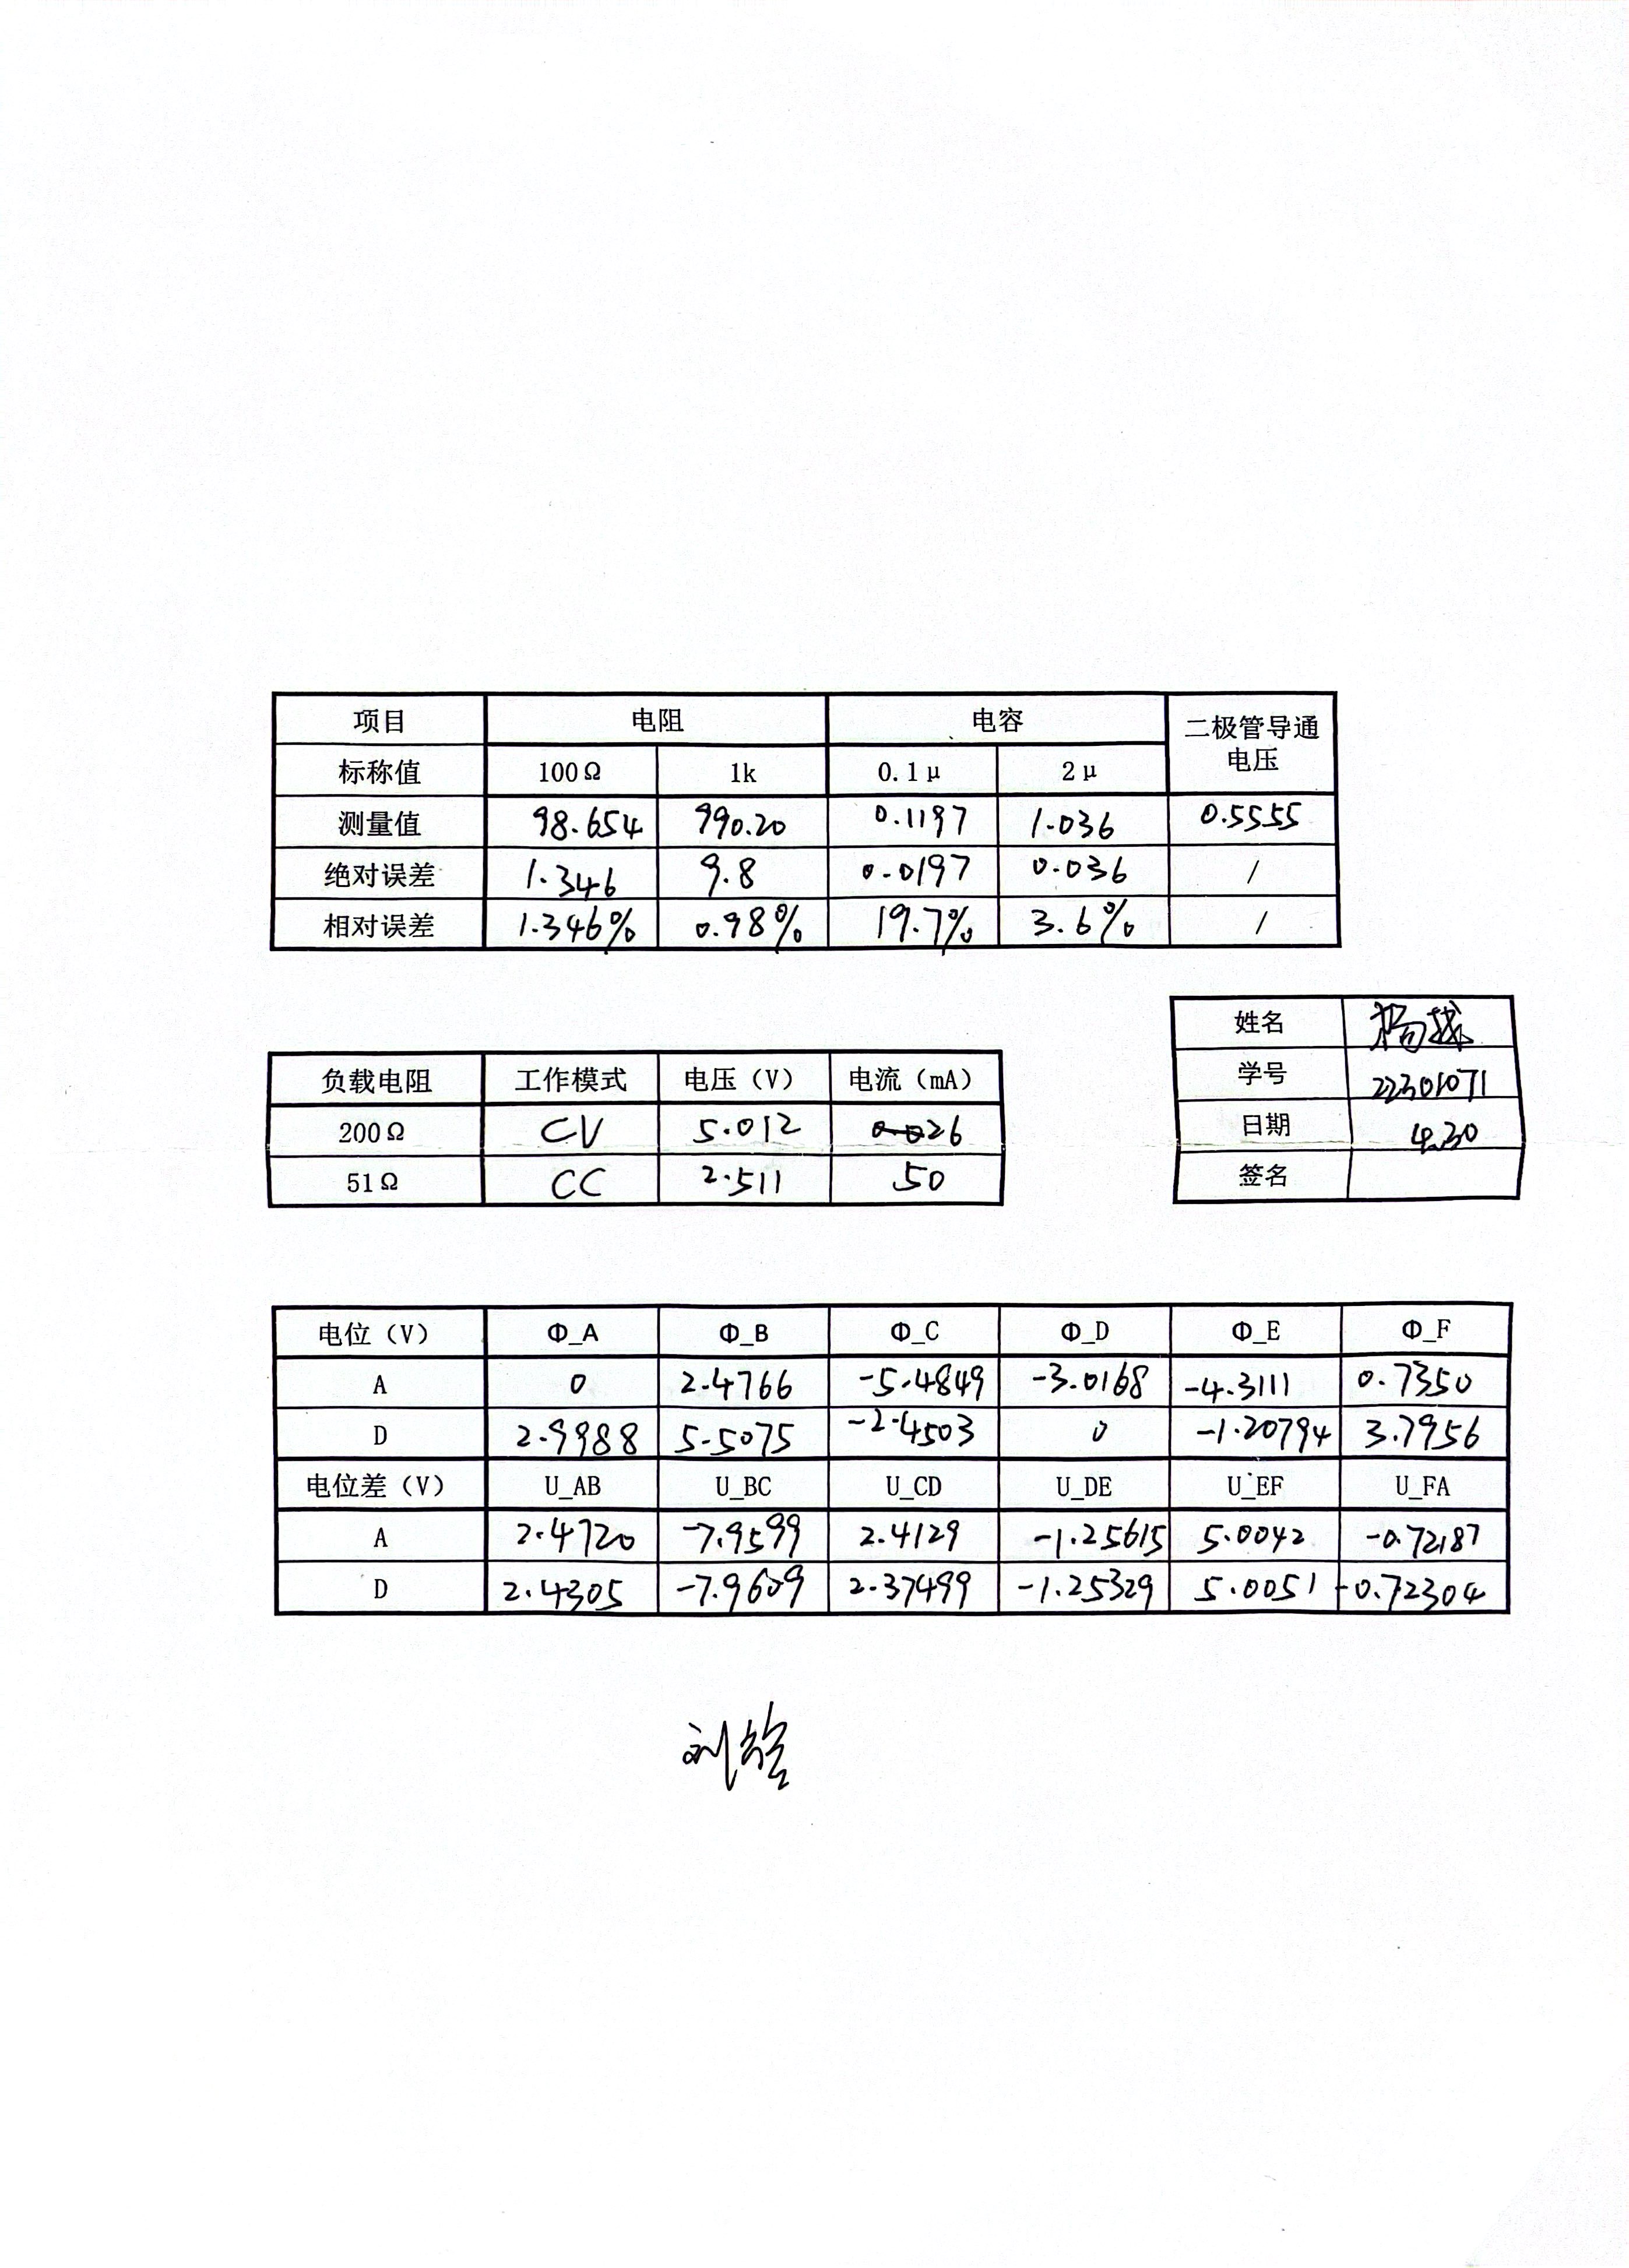 项目 电阻 电容 二极管导通电压
标称值 100Ω 1k 0.1μ 2μ
测量值 98.654 990.20 0.1197 1.036 0.5555
绝对误差 1.346 9.8 0.0197 0.036 /
相对误差 1.346% 0.98% 19.7% 3.6% /
姓名 杨越
学号 22301071
日期 4.30
签名
负载电阻 工作模式 电压（V） 电流（mA）
200Ω CV 5.012 26
51Ω CC 2.511 50
电位（V） Φ_A Φ_B Φ_C Φ_D Φ_E Φ_F
A 0 2.4766 -5.4849 -3.0168 -4.3111 0.7350
D 2.9988 5.5075 -2.4503 0 -1.20794 3.7956
电位差（V） U_AB U_BC U_CD U_DE U_EF U_FA
A 2.4720 -7.9599 2.4129 -1.25615 5.0042 -0.72187
D 2.4305 -7.9609 2.37499 -1.25329 5.0051 -0.72304
刘